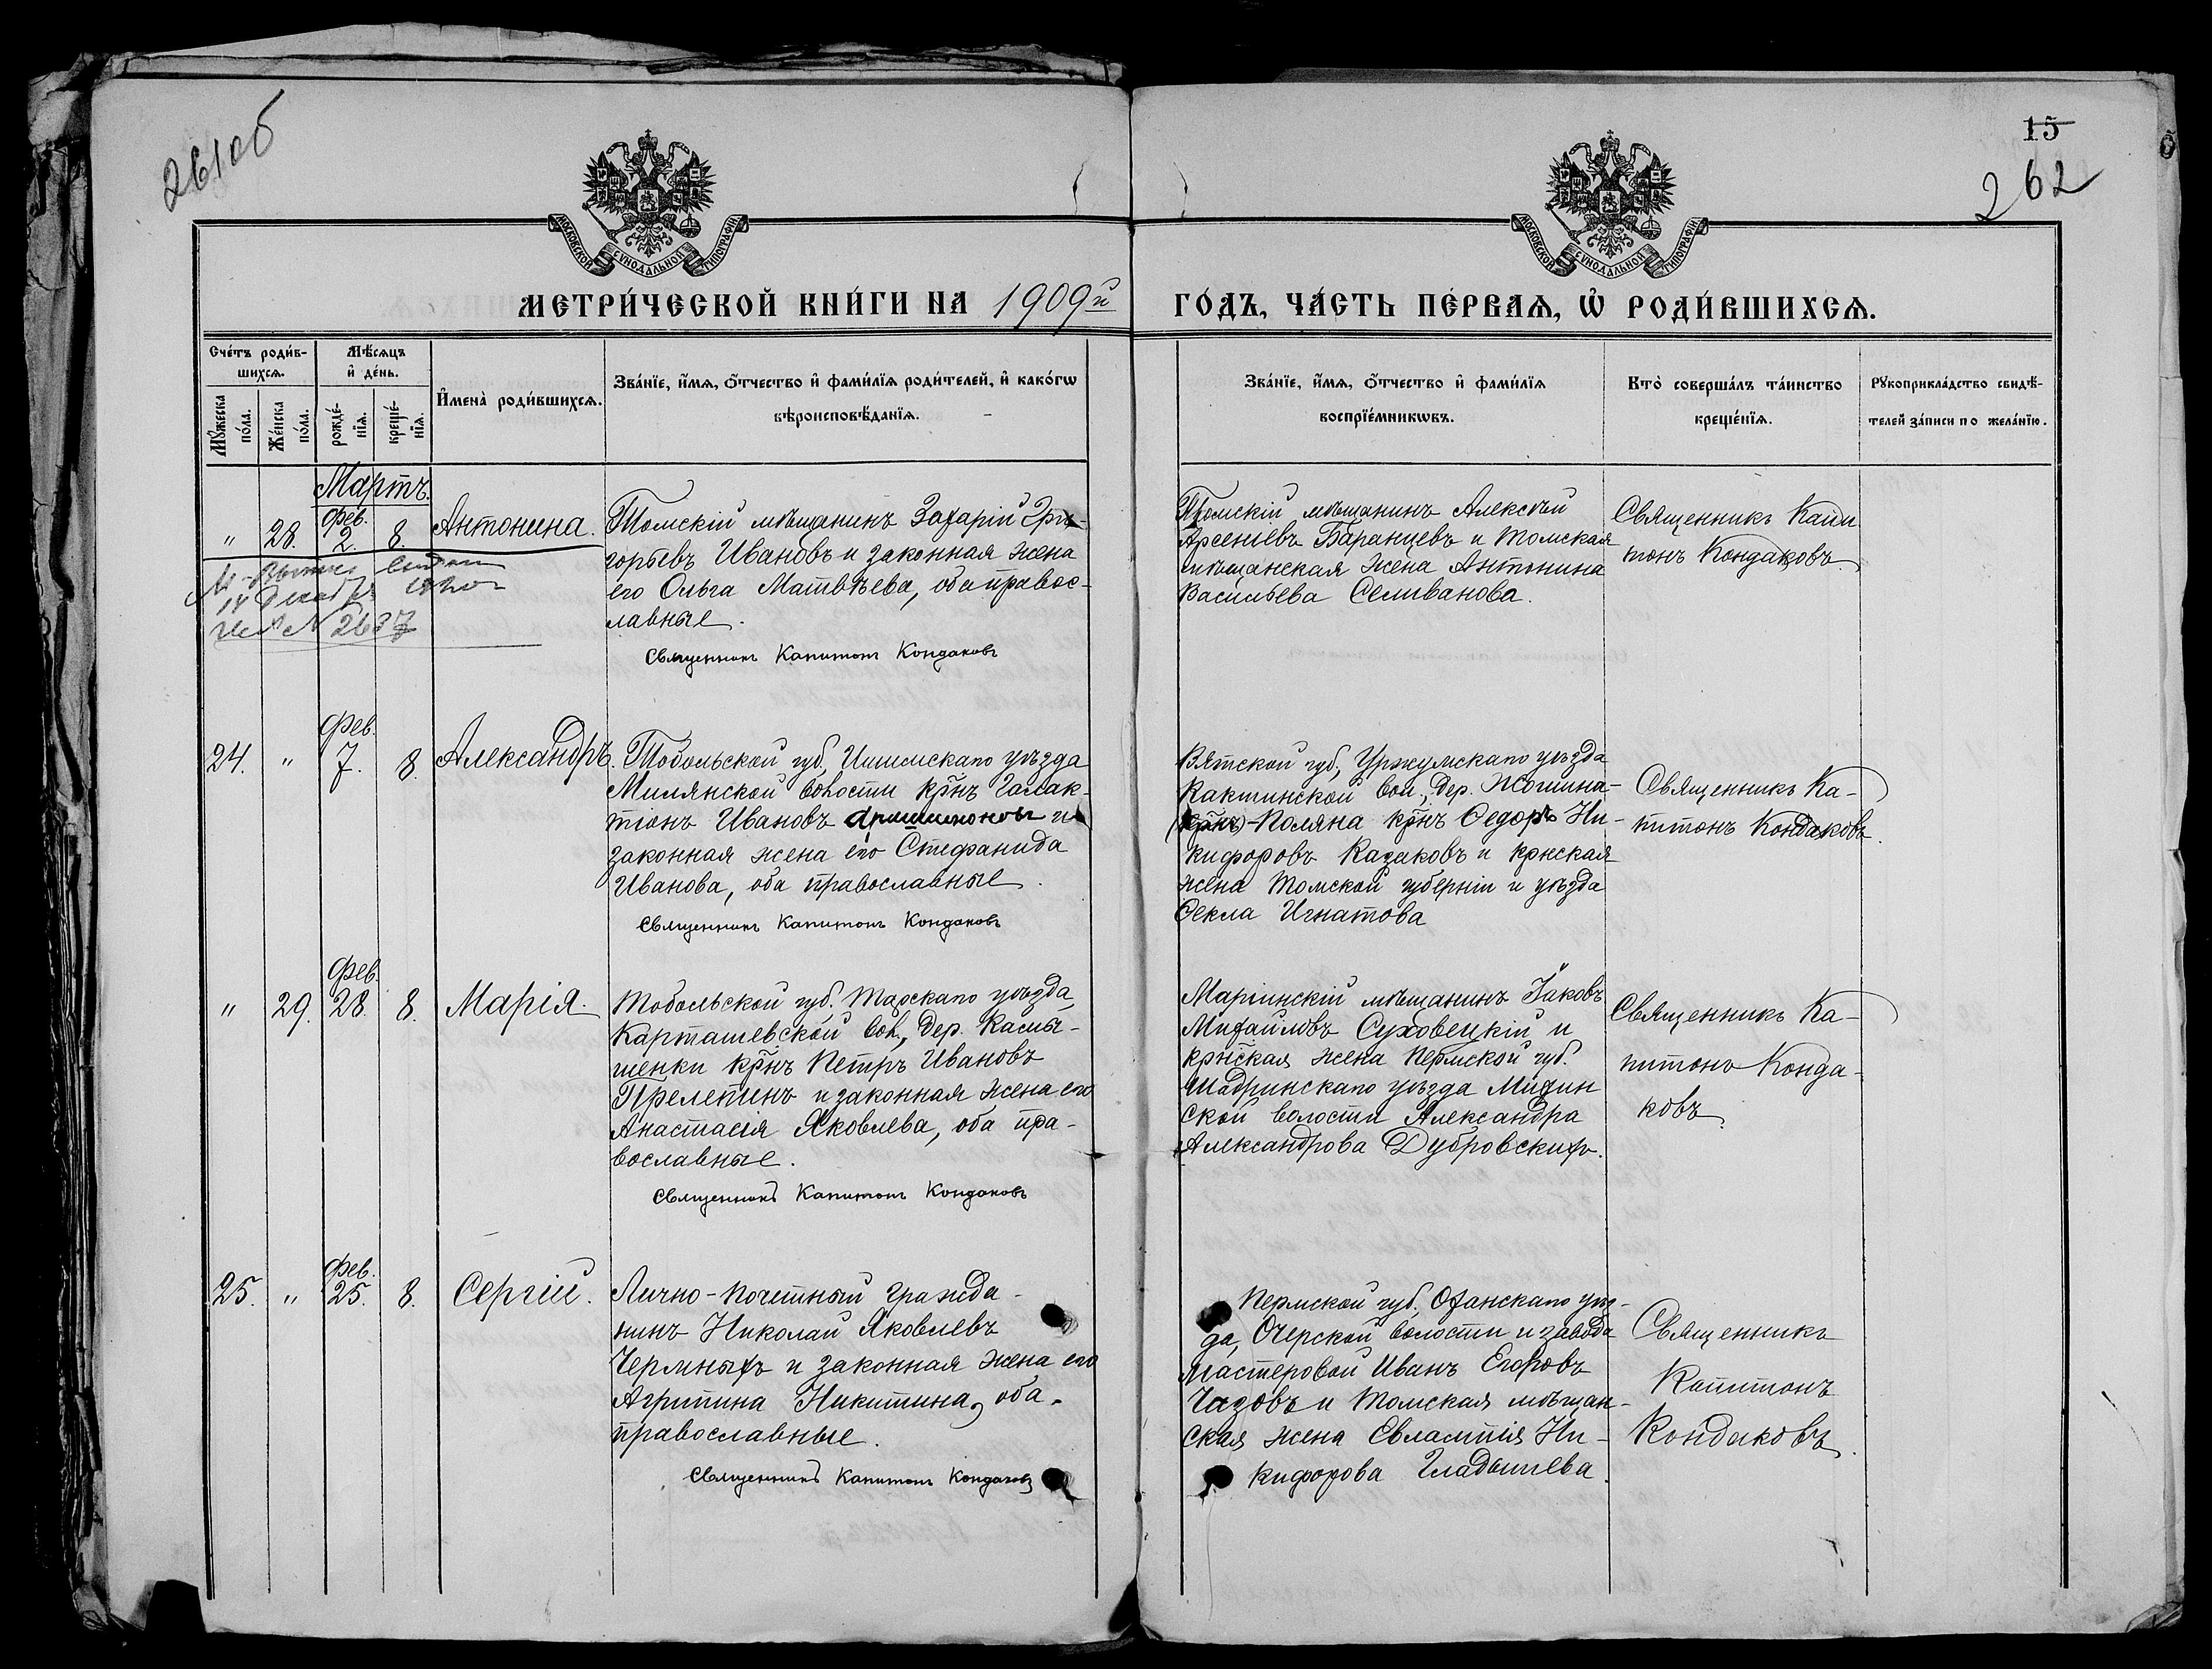 261об
15
262
МОСКОВСКОЙ СѴНОДАЛЬНОЙ ТИПОГРАФІИ
МОСКОВСКОЙ СѴНОДАЛЬНОЙ ТИПОГРАФІИ
МЕТРИ́ЧЕСКОЙ КНИ́ГИ НА 1909й ГО́ДЪ, ЧА́СТЬ ПЕ́РВАѦ, Ѡ҆ РОДИ́ВШИХСѦ.
Сче́тъ роди́в-
шихсѧ.
Мѣ́сѧцъ
и҆ де́нь.
Мꙋ́жеска
по́ла.
Же́нска
по́ла.
рожде́-
нїѧ.
креще́-
нїѧ.
И҆мена̀ роди́вшихсѧ.
Зва́нїе, и҆́мѧ, ѻ҆́тчество и҆ фами́лїѧ роди́телей, и҆ како́гѡ
вѣроисповѣ́данїѧ.
Зва́нїе, и҆́мѧ, ѻ҆́тчество и҆ фами́лїѧ
воспрїе́мникѡвъ.
Кто̀ соверша́лъ та́инство
креще́нїѧ.
Рꙋкоприкла́дство свидѣ́-
телей за́писи по жела́нїю.
Мартъ.
" 28. Фев. 2. 8. Антонина.
Томскій мѣщанинъ Захарій Гри-
горьевъ Ивановъ и законная жена
его Ольга Матвѣева, оба правос-
лавные.
Священникъ Капитонъ Кондаковъ
14 Декабр
№ 2637
Томскій мѣщанинъ Алексѣй
Арсеніевъ Баранцевъ и Томская
мѣщанская жена Антонина
Васильева Селиванова.
Священникъ Капи
тонъ Кондаковъ
24. " Фев. 7. 8. Александръ.
Тобольской губ. Ишимскаго уѣзда
волости крнъ Галак-
тіонъ Ивановъ и
законная жена его Стефанида
Иванова, оба православные.
Священникъ Капитонъ Кондаковъ
Вятской губ., Уржумскаго уѣзда
вол., дер.
Поляна крнъ Ѳедоръ Ни-
кифоровъ Казаковъ и крнская
жена Томской губерніи и уѣзда
Ѳекла Игнатова
Священникъ Ка-
питонъ Кондаковъ.
" 29. Фев. 28. 8. Марія.
Тобольской губ. Тарскаго уѣзда,
Карташевской вол., дер. Камы-
шенки крнъ Петръ Ивановъ
Прелетинъ и законная жена его
Анастасія Яковлева, оба пра-
вославные.
Священникъ Капитонъ Кондаковъ
Маріинскій мѣщанинъ Іаковъ
Михайловъ Суховецкій и
крнская жена Пермской губ.
Шадринскаго уѣзда
ской волости Александра
Александрова Дубровскихъ.
Священникъ Ка-
питонъ Конда-
ковъ
25. " Фев. 25. 8. Сергій.
Лично-почетный гражда-
нинъ Николай Яковлевъ
Чермныхъ и законная жена его
Агрипина Никитина, оба
православные.
Священникъ Капитонъ Кондаковъ
Пермской губ., Оханскаго уѣз-
да, Очерской волости и завода
мастеровой Иванъ Егоровъ
Чазовъ и Томская мѣщан-
ская жена Евлампія Ни-
кифорова Гладышева.
Священникъ
Капитонъ
Кондаковъ.